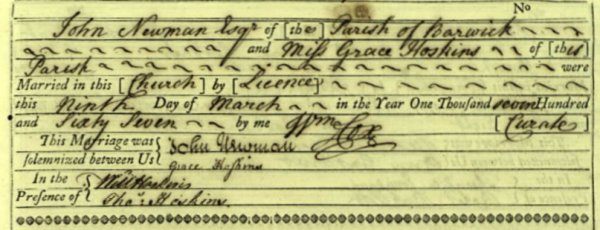 No
John Newman Esqr of [the] Parish of Barwick
and Miss Grace Hoskins of [this]
Parish were
Married in this [Church] by [Licence]
this Ninth Day of March in the Year One Thousand seven Hundred
and Sixty Seven by me Wm Cox [Curate]
This Marriage was
solemnized between Us
John Newman
Grace Hoskins
In the
Presence of
Will Hoskins
Thos Hoskins.